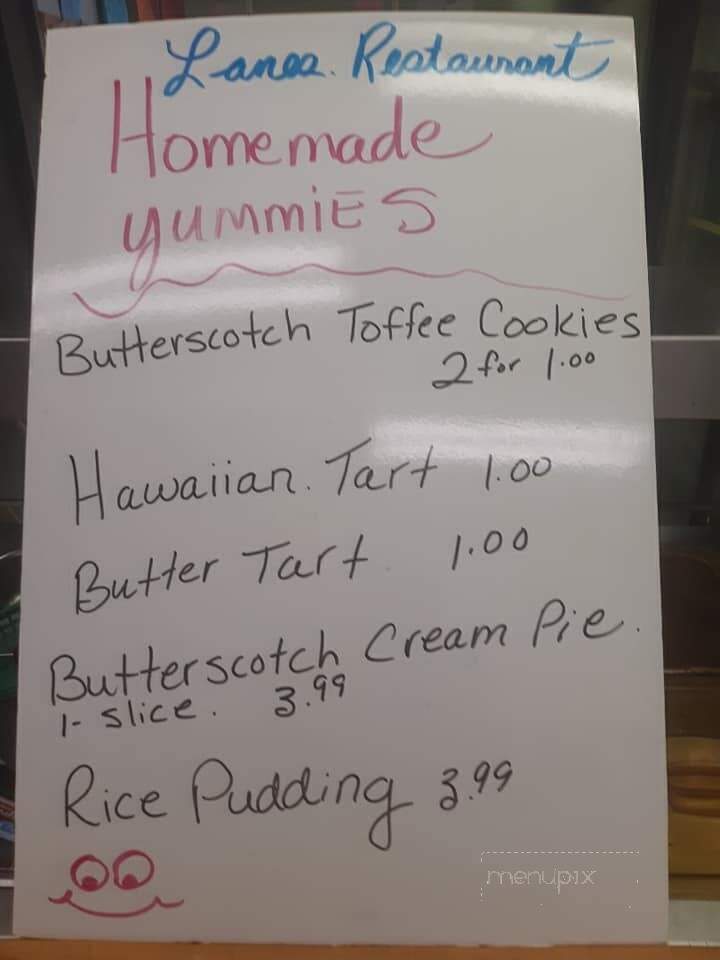 Lanoa. Restaurant
Homemade
yummies
Butterscotch Toffee Cookies
2 for 1.00
Hawaiian. Tart 1.00
Butter Tart 1.00
Butterscotch Cream Pie.
1- slice. 3.99
Rice Pudding 3.99
menupix